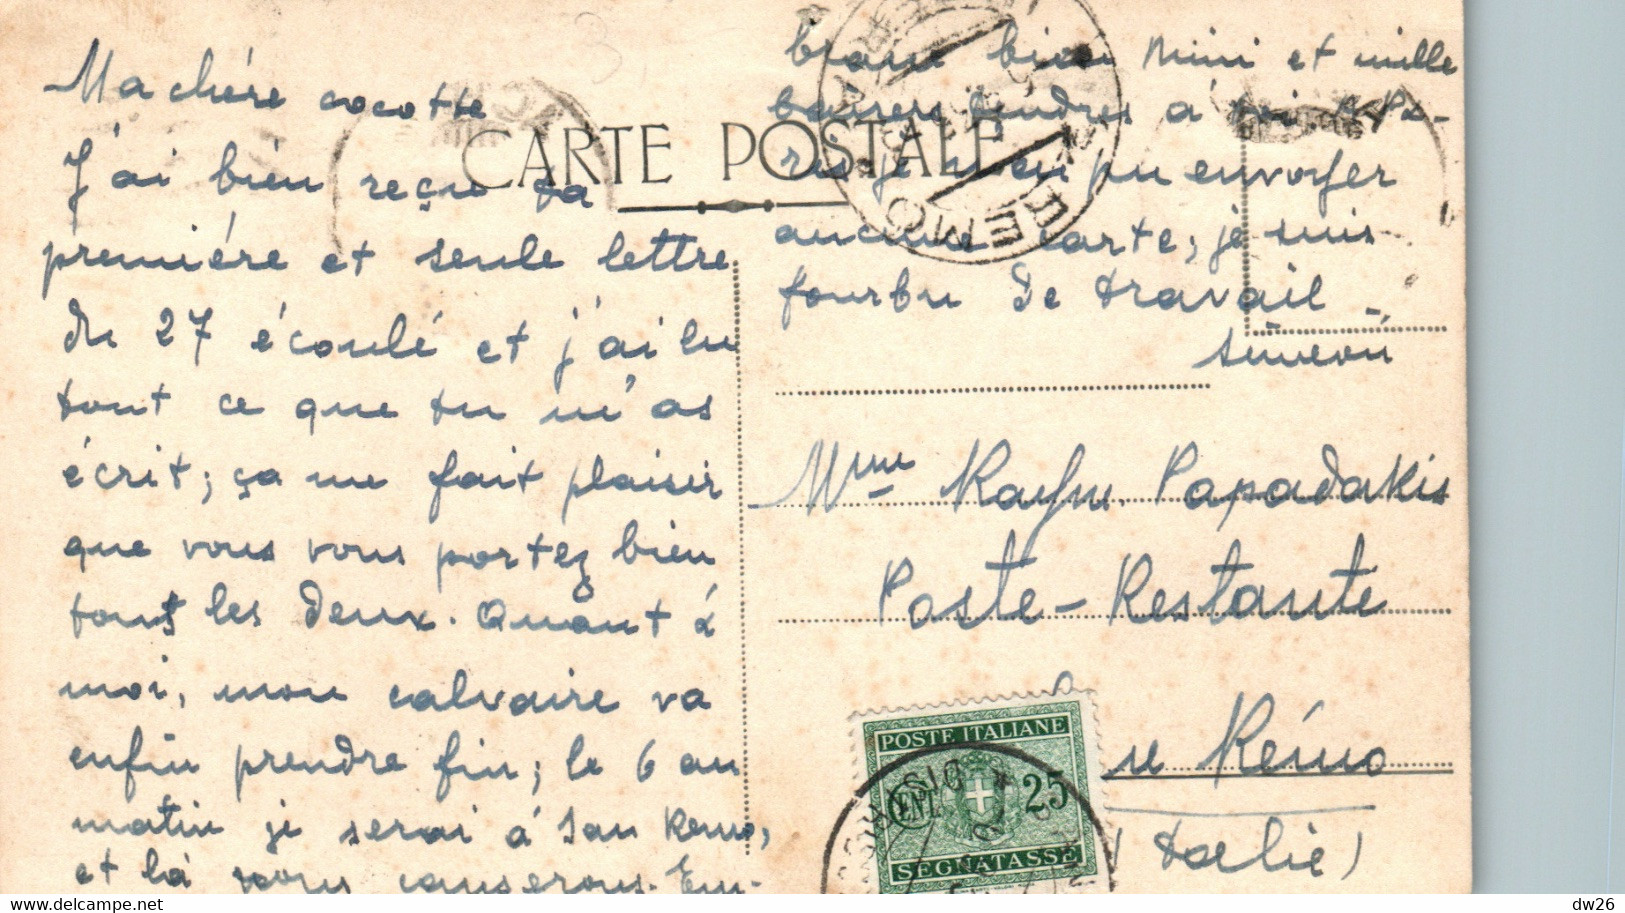 Ma chére cocotte
J'ai bien reçu ta
premiére et seule lettre
du 27 écoulé et j'ai lu
tout ce que tu m'as
écrit; ça me fait plaisir
que vous vous portez bien
tous les deux. Quant à
moi, mon calvaire va
enfin prendre fin; le 6 au
matin je serai á San Remo,
et là nous causerons. Em-
brasse bien Mimi et mille
baisers tendres á toi. A Pa-
ris je n'en pu envoyer
aucune carte, je suis
fourbu de travail
Simeon
CARTE POSTALE
Mme Papadakis
Poste-Restante
Rémo
(Italie)
POSTE ITALIANE
CENT. 25
SEGNATASSE
dw26